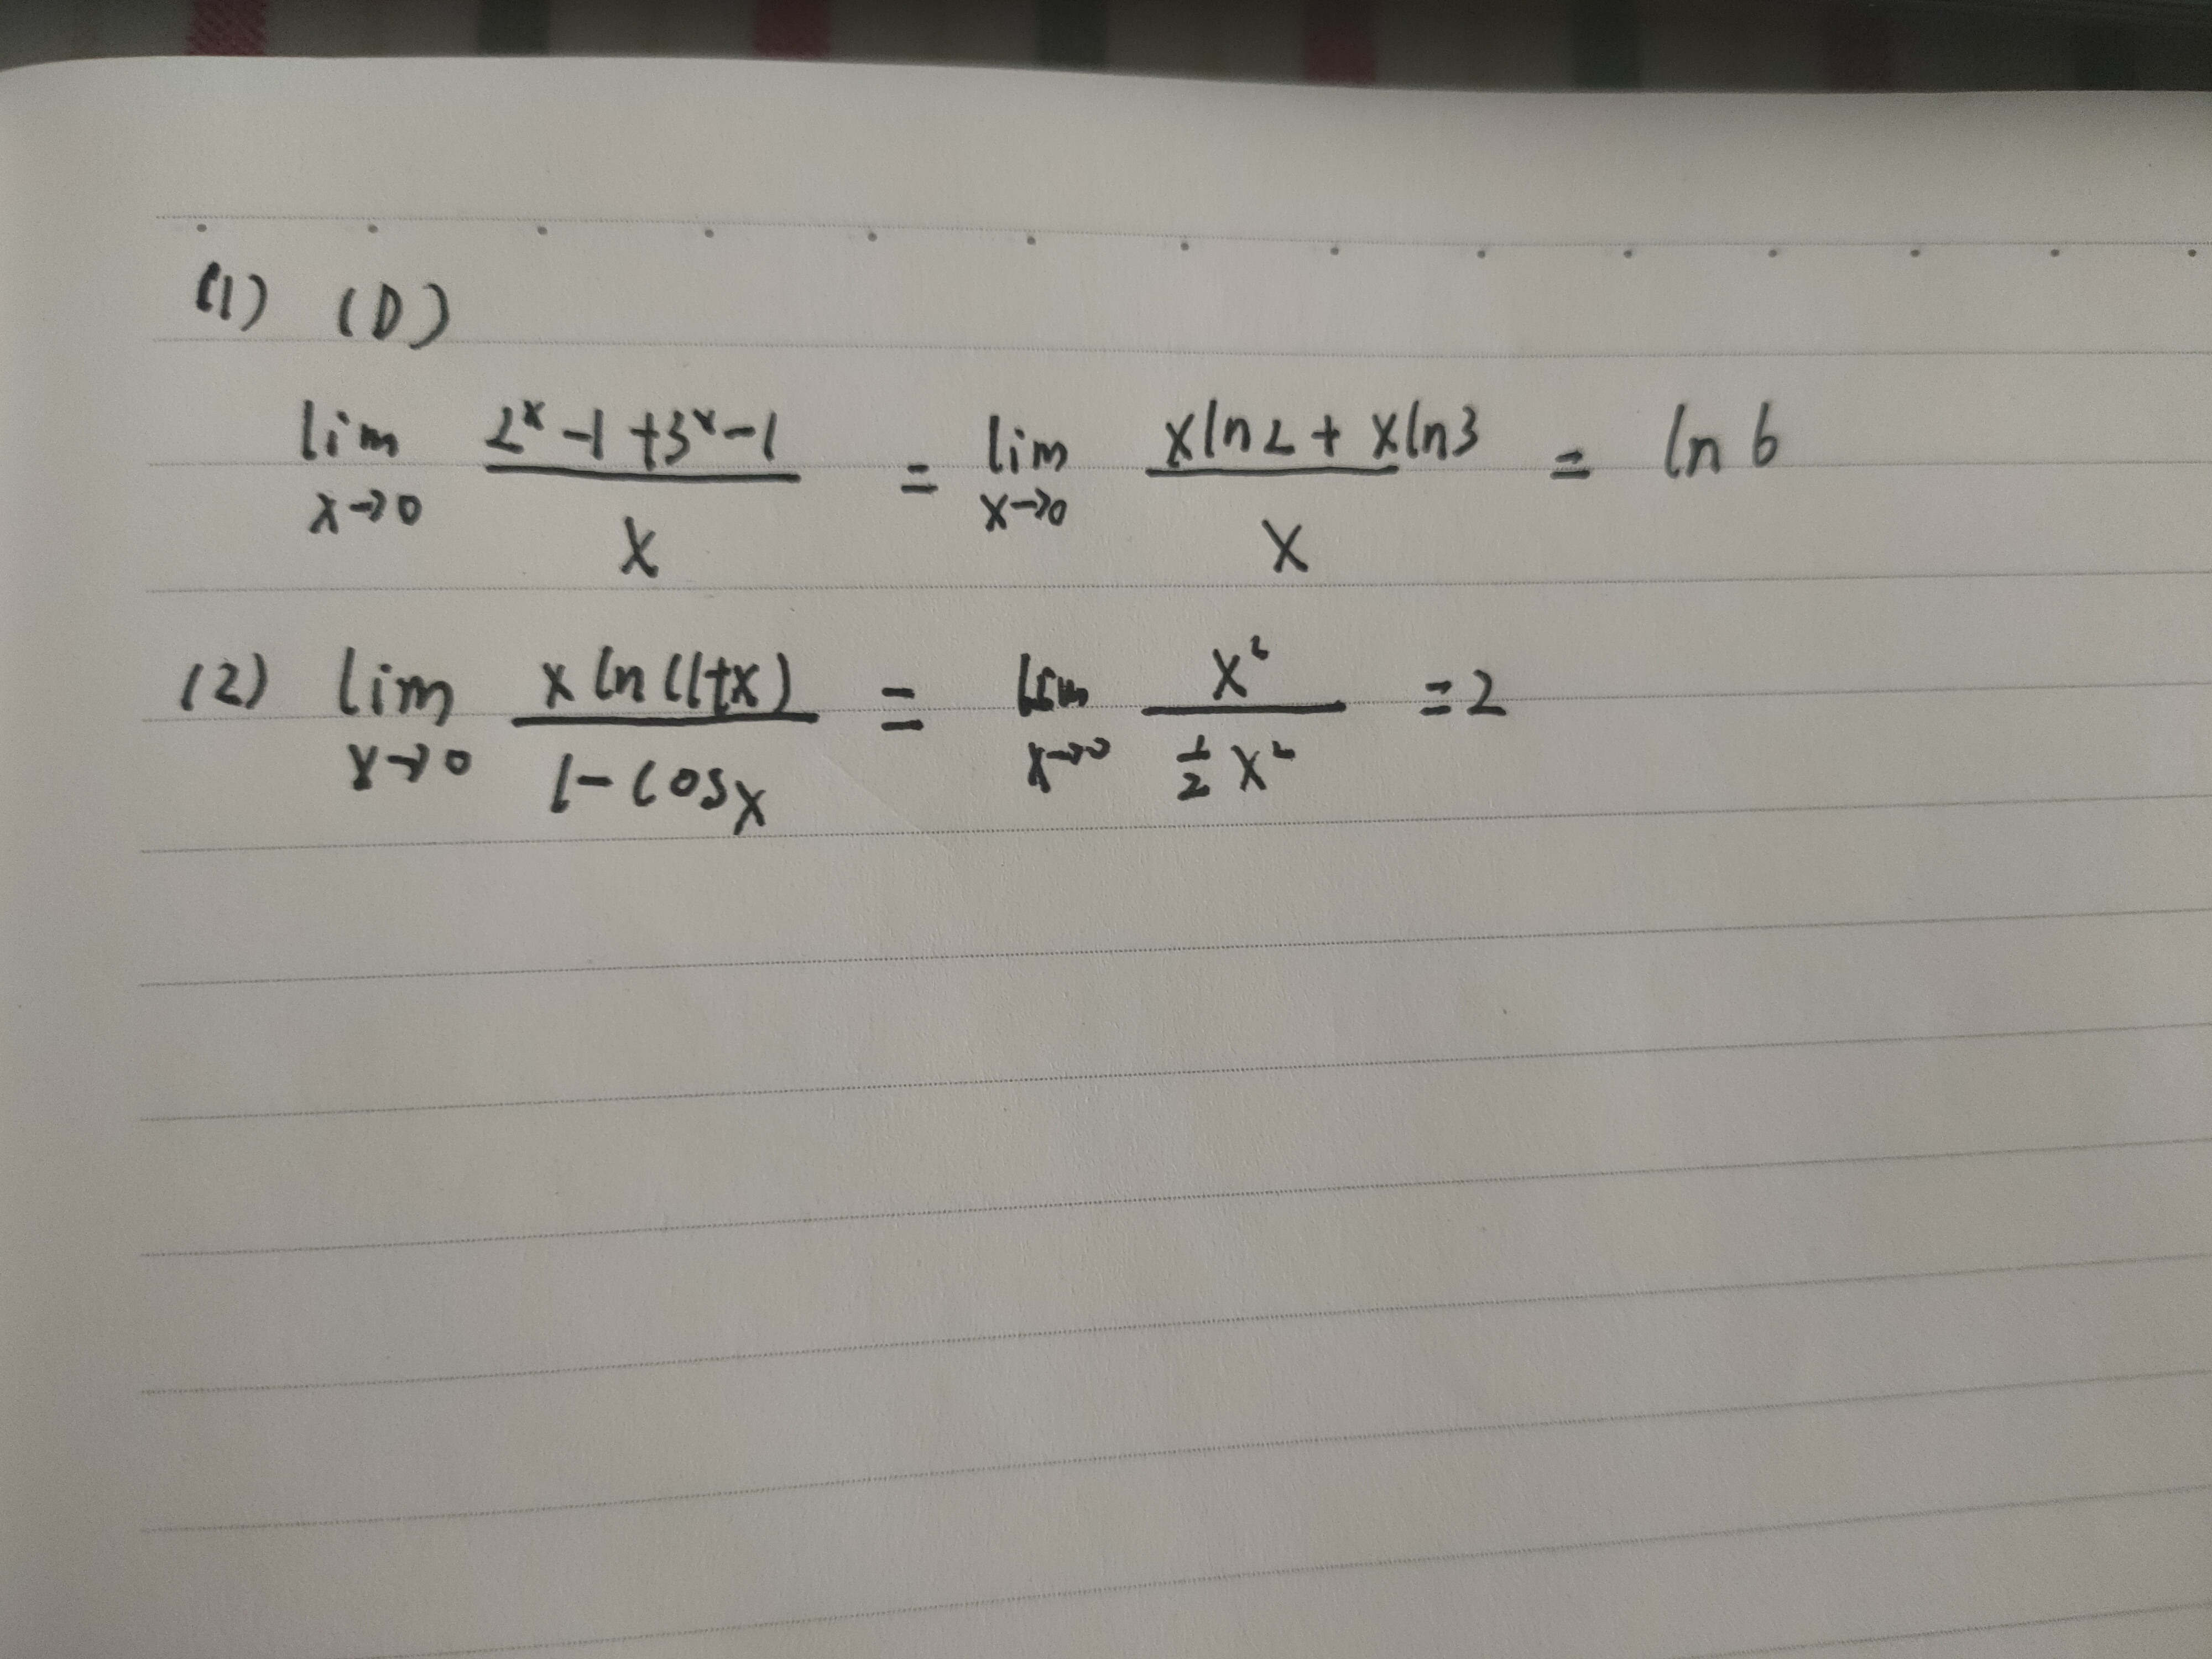 (1) (D)
lim x→0 (2^x-1+3^x-1)/x = lim x→0 (x ln2 + x ln3)/x = ln 6
(2) lim x→0 (x ln(1+x))/(1-cosx) = lim x→0 x²/(½x²) = 2